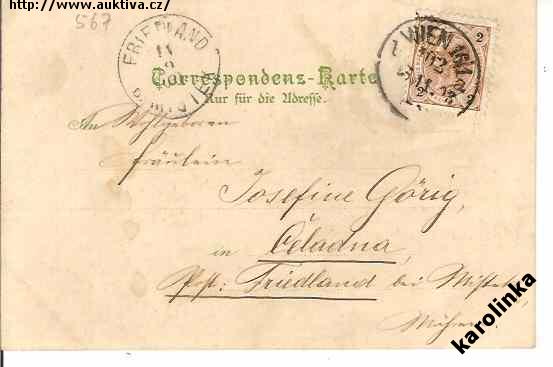 http://www.auktiva.cz/
567
FRIEDLAND
WIEN
2
2
Correspondenz-Karte
Nur für die Adresse.
An Wohlgeboren
Fräulein
Josefine Görig,
in Čeladna,
Post: Friedland bei Mistek,
Mähren
karolinka